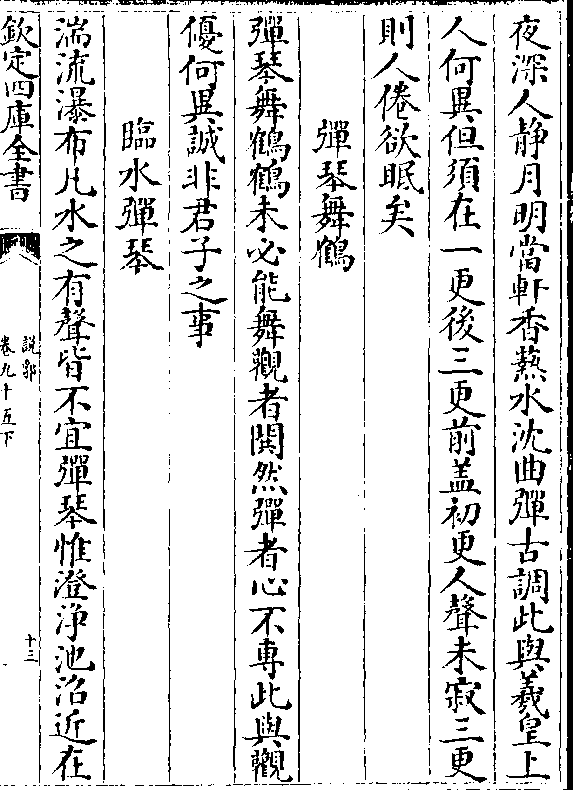 夜深人静月明當軒香爇水沈曲彈古調此與羲皇上
人何異但須在一更後三更前盖初更人聲未寂三更
則人倦欲眠矣
彈琴舞鶴
彈琴舞鶴鶴未必能舞觀者閧然彈者心不專此與觀
優何異誠非君子之事
臨水彈琴
湍流瀑布凡水之有聲皆不宜彈琴惟澄浄池沼近在
欽定四庫全書
説郛
卷九十五下
十三